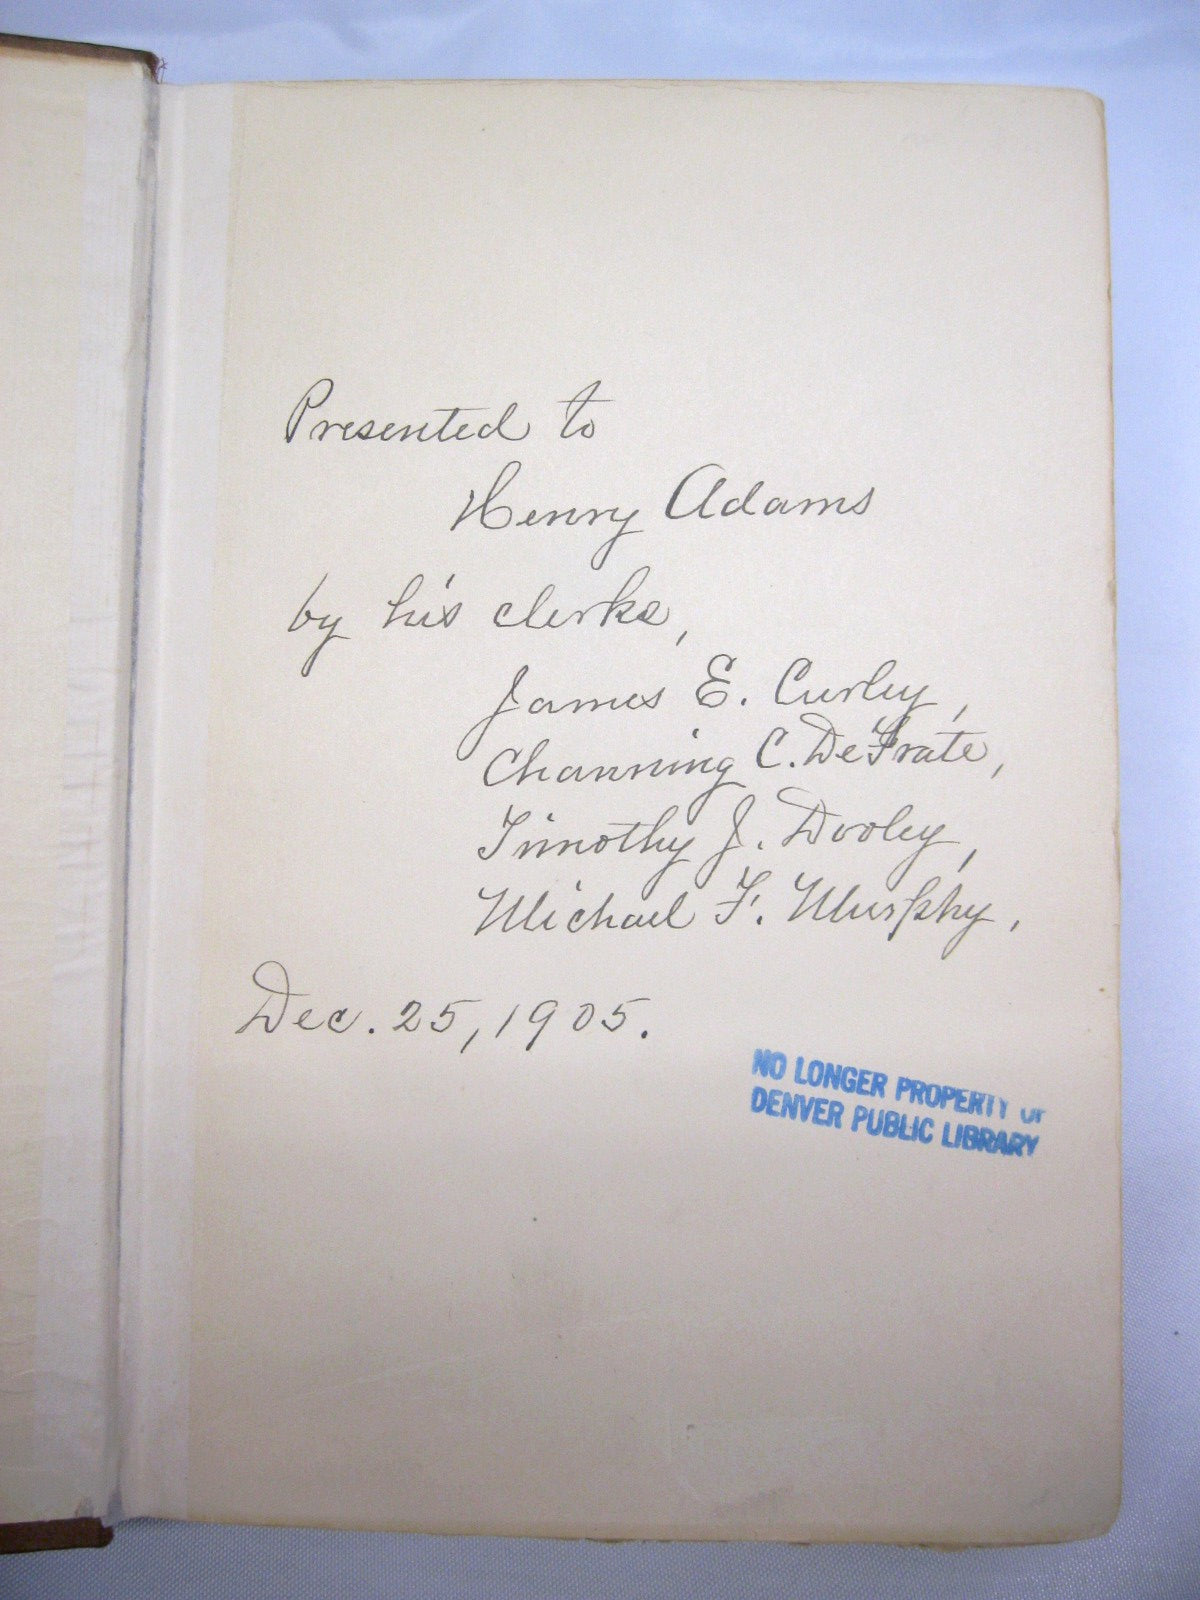 Presented to
Henry Adams
by his clerks,
James E. Curley,
Channing C. DeFrate,
Timothy J. Dooley,
Michael F. Murphy.
Dec. 25, 1905.
NO LONGER PROPERTY OF
DENVER PUBLIC LIBRARY